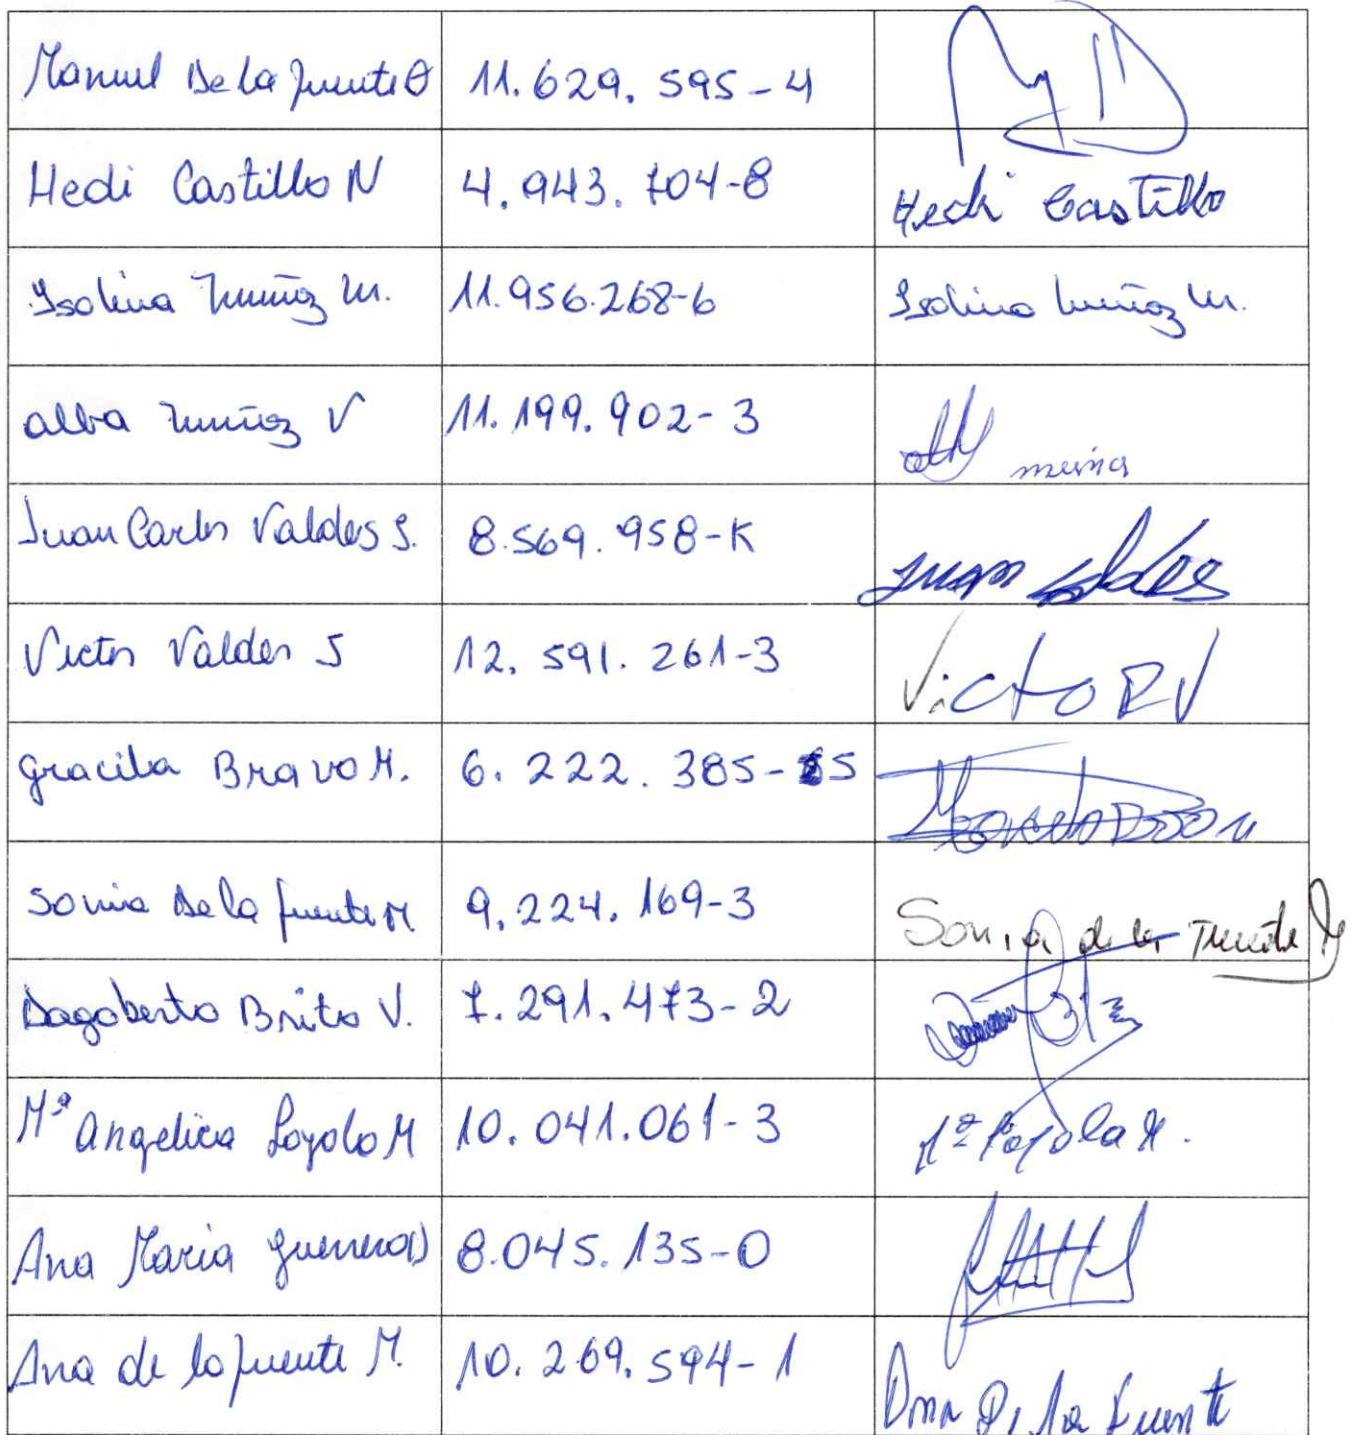 Manuel De la Fuente O 11.629.595-4
Hedi Castillo N 4.943.704-8 Hedi Castillo
Isolina Muñoz M. 11.956.268-6 Isolina Muñoz M.
Alba Muñoz V 11.199.902-3
Juan Carlos Valdes S. 8.569.958-K Juan Valdes
Victor Valdes S 12.591.261-3 VictoR V
Graciela Bravo M. 6.222.385-5
Sonia De la fuente M 9.224.169-3 Sonia de la Fuente M
Dagoberto Brito V. 7.291.473-2
Mª Angelica Loyola M 10.041.061-3 Mª Loyola M.
Ana Maria Guerrero D 8.045.135-0
Ana de la fuente M. 10.269.594-1 Ana D. la Fuente